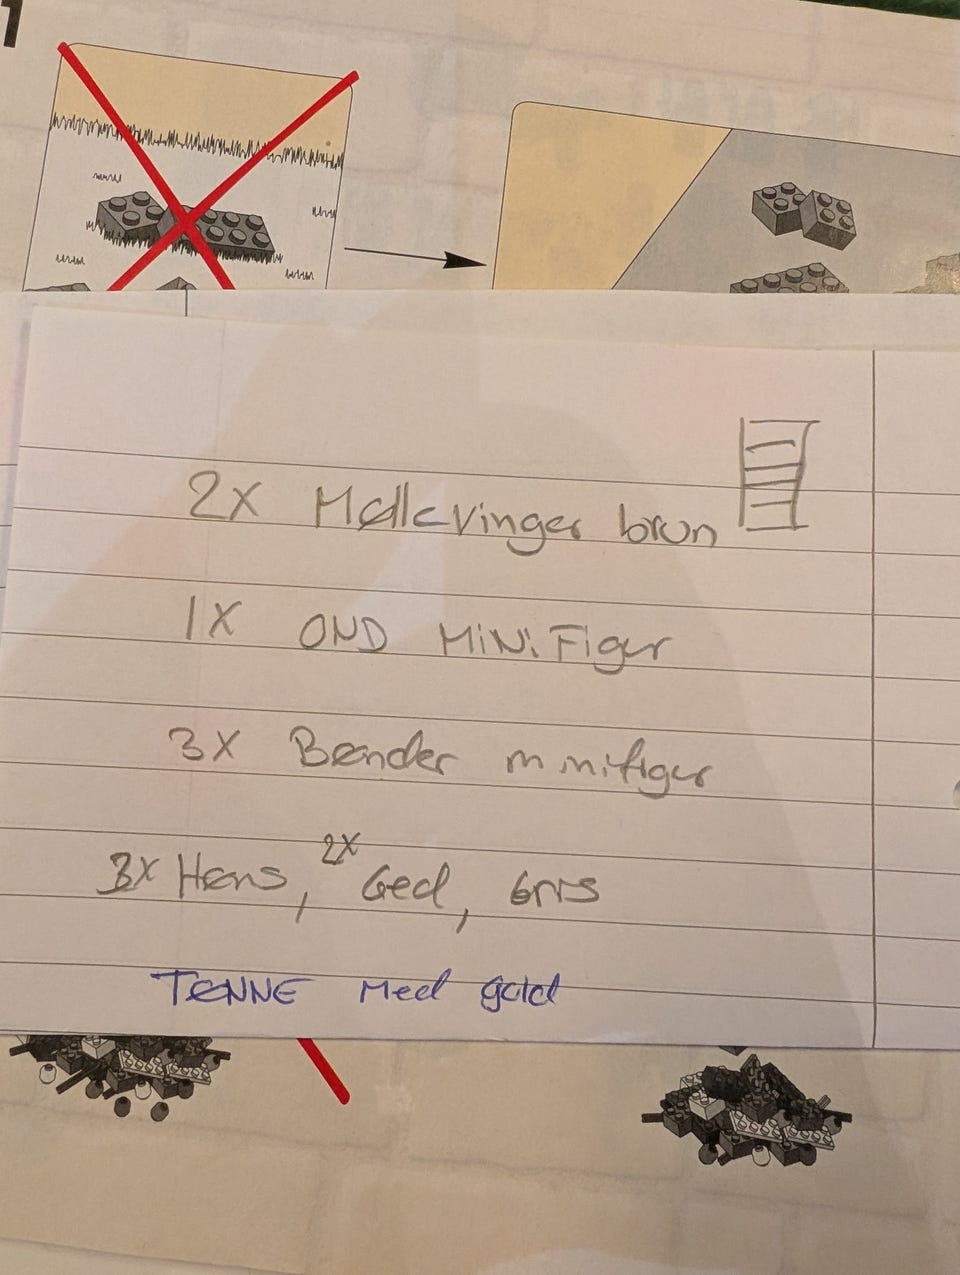 1
2X Møllevinger brun
1X OND MiNiFiger
3X Bønder minifiger
3X Høns, 2X Ged, Gris
TØNNE Med guld